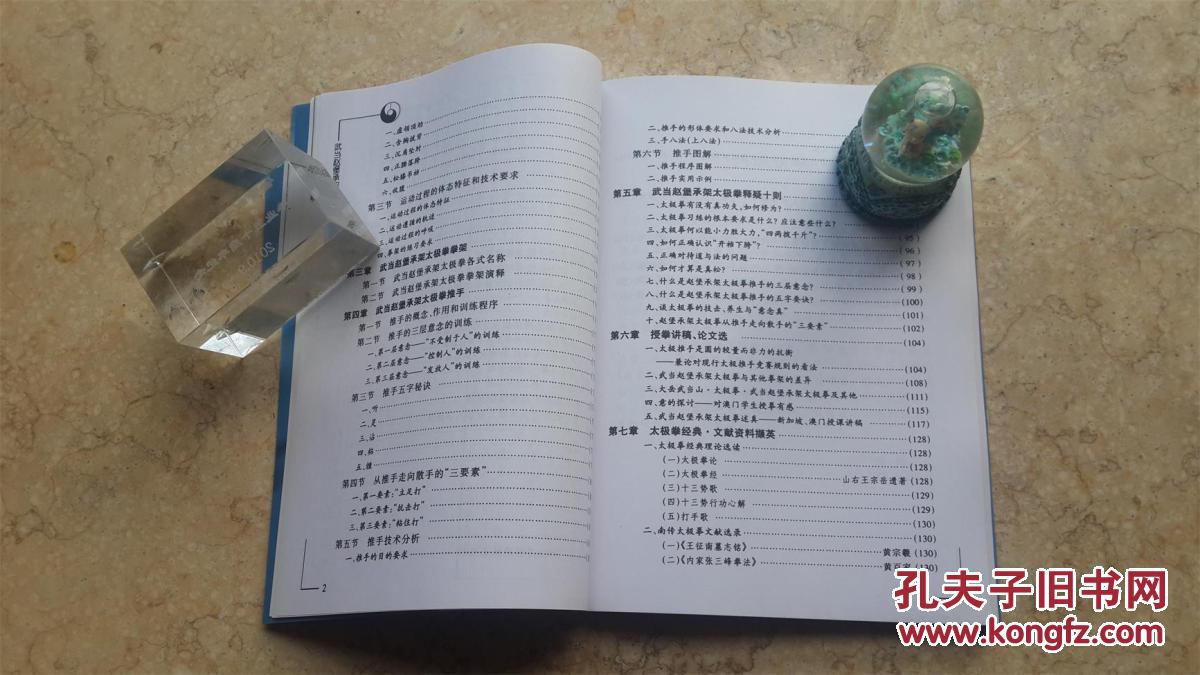 武当赵堡承
一、虚领顶劲
二、含胸拔背
三、沉肩坠肘
四、正腰落胯
五、松膝吊裆
六、收腹
第三节 运动过程的体态特征和技术要求
一、运动过程的体态特征
二、运动遵循的轨迹
三、运动过程的呼吸
四、拳架的练习要求
第三章 武当赵堡承架太极拳拳架
第一节 武当赵堡承架太极拳各式名称
第二节 武当赵堡承架太极拳拳架演释
第四章 武当赵堡承架太极拳推手
第一节 推手的概念、作用和训练程序
第二节 推手的三层意念的训练
一、第一层意念——“不受制于人”的训练
二、第二层意念——“控制人”的训练
三、第三层意念——“发放人”的训练
第三节 推手五字秘诀
一、听
二、足
三、沾
四、粘
五、缠
第四节 从推手走向散手的“三要素”
一、第一要素:“立足打”
二、第二要素:“抗击打”
三、第三要素:“粘住打”
第五节 推手技术分析
一、推手的目的要求
2
二、推手的形体要求和八法技术分析
三、手八法(上八法)
第六节 推手图解
一、推手程序图解
二、推手实用示例
第五章 武当赵堡承架太极拳释疑十则
一、太极拳有没有真功夫,如何修为?
二、太极拳习练的根本要求是什么?应注意些什么?
三、太极拳何以能小力胜大力,“四两拨千斤”? (95)
四、如何正确认识“开裆下胯”? (96)
五、正确对待道与法的问题 (97)
六、如何才算是真松? (98)
七、什么是赵堡承架太极拳推手的三层意念? (99)
八、什么是赵堡承架太极拳推手的五字要诀? (100)
九、谈太极拳的技击、养生与“意念真” (101)
十、赵堡承架太极拳从推手走向散手的“三要素” (102)
第六章 授拳讲稿、论文选 (104)
一、太极推手是圆的较量而非力的抗衡
——兼论对现行太极推手竞赛规则的看法 (104)
二、武当赵堡承架太极拳与其他拳架的差异 (108)
三、大岳武当山·太极拳·武当赵堡承架太极拳及其他 (111)
四、意的探讨——对澳门学生授拳有感 (115)
五、武当赵堡承架太极拳述真——新加坡、澳门授课讲稿 (117)
第七章 太极拳经典·文献资料撷英 (128)
一、太极拳经典理论选读 (128)
(一)太极拳论 (128)
(二)太极拳经 山右王宗岳遗著(128)
(三)十三势歌 (129)
(四)十三势行功心解 (129)
(五)打手歌 (130)
二、南传太极拳文献选录 (130)
(一)《王征南墓志铭》 黄宗羲(130)
(二)《内家张三峰拳法》 黄百家(130)
孔夫子旧书网
www.kongfz.com